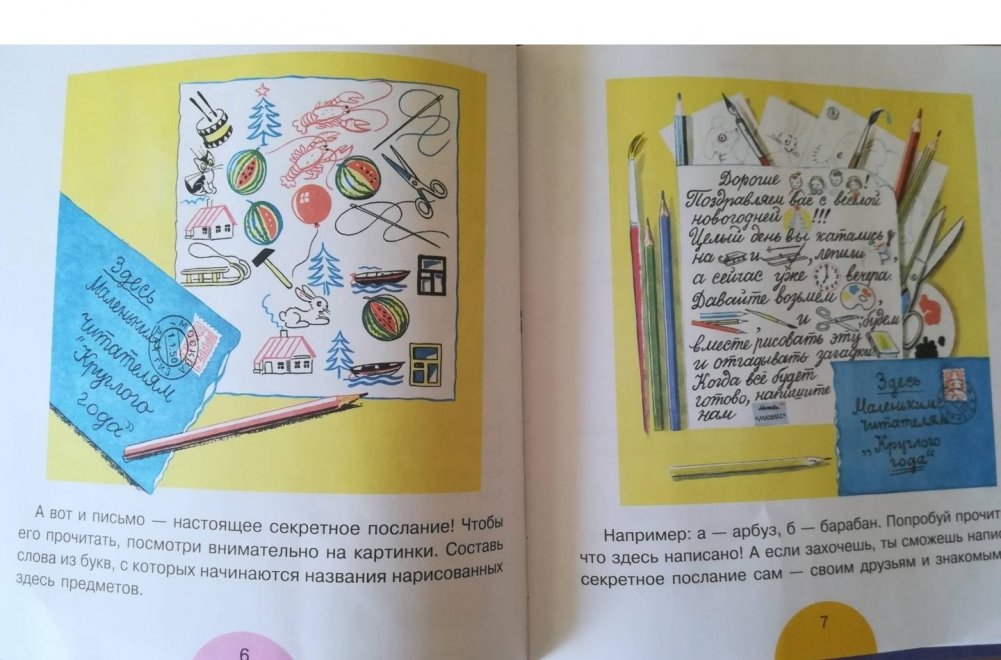 Здесь
Маленьким
читателям
"Круглого
года"
МОСКВА
А вот и письмо — настоящее секретное послание! Чтобы
его прочитать, посмотри внимательно на картинки. Составь
слова из букв, с которых начинаются названия нарисованных
здесь предметов.
6
Дорогие
Поздравляем вас с весёлой
новогодней !!!
Целый день вы катались
на и , лепили ,
а сейчас уже вечера.
Давайте возьмём ,
, и , будем
вместе рисовать эту
и отгадывать загадки.
Когда всё будет
готово, напишите
нам
Здесь
Маленьким
читателям
"Круглого
года"
Например: а — арбуз, б — барабан. Попробуй прочит
что здесь написано! А если захочешь, ты сможешь напис
секретное послание сам — своим друзьям и знакомым
7